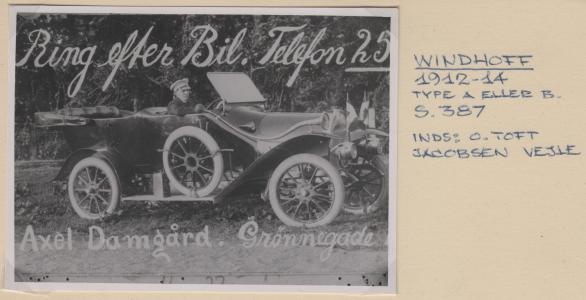 Ring efter Bil. Telefon 25
Axel Damgård. Grønnegade
WINDHOFF
1912-14
TYPE A ELLER B.
S. 387
INDS: O. TOFT
JACOBSEN VEJLE